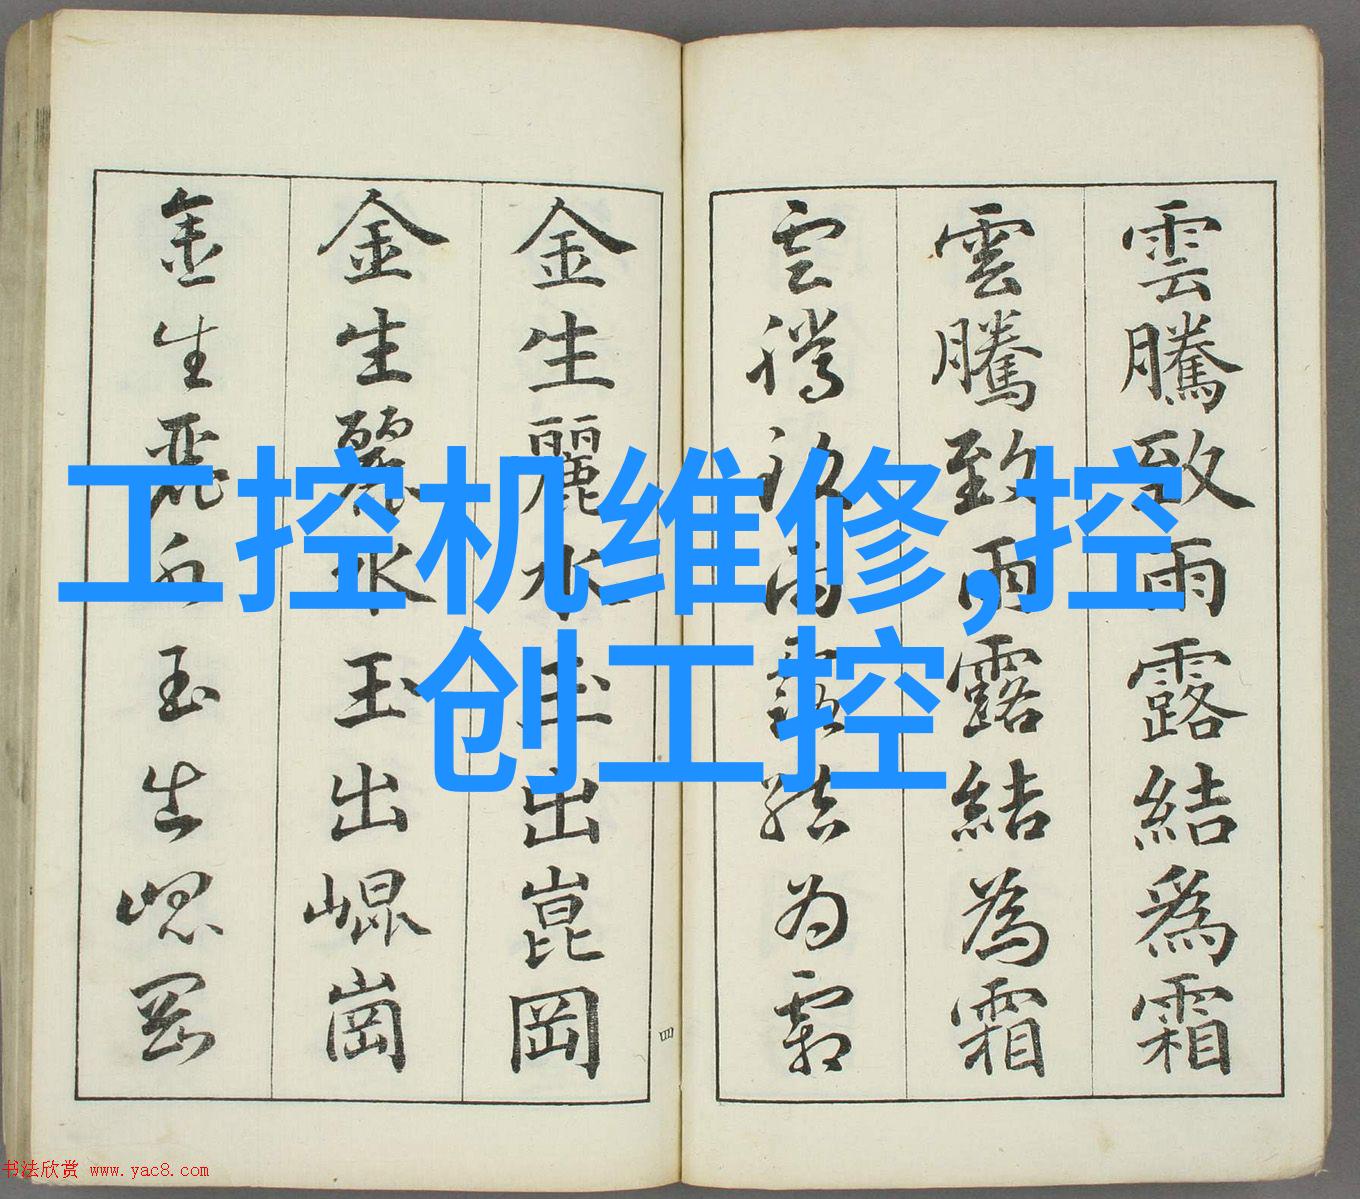 工控机维修,控
创工控
雲騰致雨露結爲霜
雲騰致雨露結為霜
雲騰致雨露結为霜
金生麗水玉出崑岡
金生麗水玉出崐崗
金生麗水玉出崐岡
四
书法欣赏 www.yac8.com